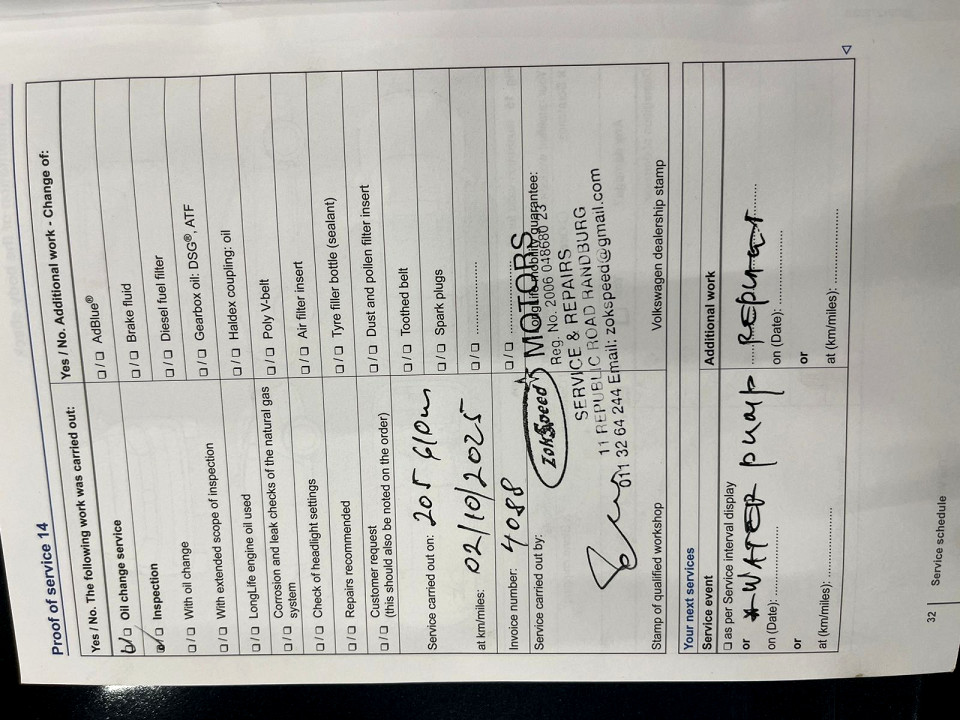 Proof of service 14
Yes / No. The following work was carried out:
☑/☐ Oil change service
☑/☐ Inspection
☐/☐ With oil change
☐/☐ With extended scope of inspection
☐/☐ LongLife engine oil used
☐/☐ Corrosion and leak checks of the natural gas
system
☐/☐ Check of headlight settings
☐/☐ Repairs recommended
☐/☐ Customer request
(this should also be noted on the order)
Service carried out on: 205 610 km
at km/miles: 02/10/2025
Invoice number: 4088
Service carried out by:
Stamp of qualified workshop
Yes / No. Additional work - Change of:
☐/☐ AdBlue®
☐/☐ Brake fluid
☐/☐ Diesel fuel filter
☐/☐ Gearbox oil: DSG®, ATF
☐/☐ Haldex coupling: oil
☐/☐ Poly V-belt
☐/☐ Air filter insert
☐/☐ Tyre filler bottle (sealant)
☐/☐ Dust and pollen filter insert
☐/☐ Toothed belt
☐/☐ Spark plugs
☐/☐ ....................
☐/☐ ....................
LongLife mobility guarantee:
Volkswagen dealership stamp
ZokSpeed MOTORS
Reg. No. 2006 048680 23
SERVICE & REPAIRS
11 REPUBLIC ROAD RANDBURG
011 32 64 244 Email: zokspeed@gmail.com
Your next services
Service event
☐ as per Service interval display
or * WATER pump
on (Date): ....................
or
at (km/miles): ....................
Additional work
on (Date): ....................
or
at (km/miles): ....................
32 | Service schedule